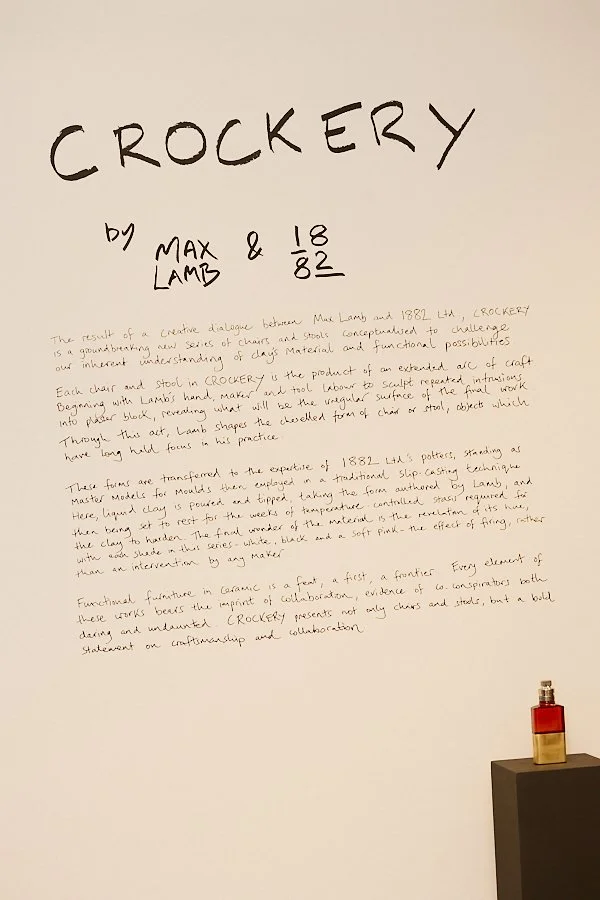 CROCKERY
by MAX LAMB & 1882
The result of a creative dialogue between Max Lamb and 1882 Ltd., CROCKERY
is a groundbreaking new series of chairs and stools conceptualised to challenge
our inherent understanding of clay's material and functional possibilities
Each chair and stool in CROCKERY is the product of an extended arc of craft.
Beginning with Lamb's hand, maker and tool labour to sculpt repeated intrusions
into plaster block, revealing what will be the irregular surface of the final work
Through this act, Lamb shapes the chiselled form of chair or stool, objects which
have long held focus in his practice.
These forms are transferred to the expertise of 1882 Ltd's potters, standing as
Master Models for Moulds then employed in a traditional slip-casting technique
Here, liquid clay is poured and tipped, taking the form authored by Lamb, and
then being set to rest for the weeks of temperature-controlled stasis required for
the clay to harden. The final wonder of the material is the revelation of its hue,
with each shade in this series - white, black and a soft pink - the effect of firing, rather
than an intervention by any maker
Functional furniture in ceramic is a feat, a first, a frontier. Every element of
these works bears the imprint of collaboration, evidence of co-conspirators both
daring and undaunted. CROCKERY presents not only chairs and stools, but a bold
statement on craftsmanship and collaboration